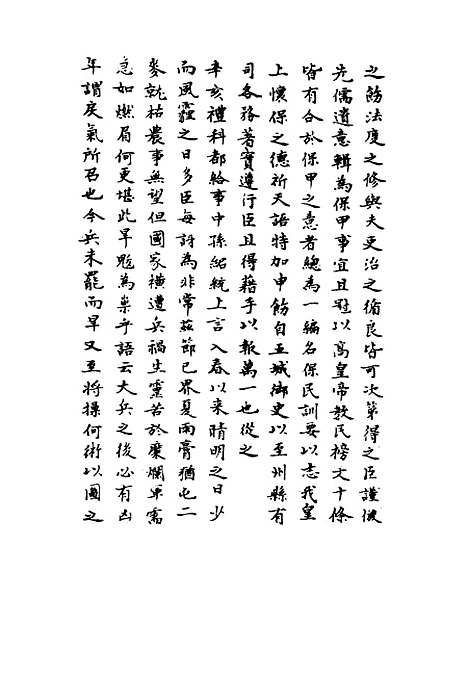 之飭法度之修與夫吏治之循良皆可次第得之臣謹倣
先儒遺意輯為保甲事宜且冠以高皇帝教民榜文十條
皆有合於保甲之意者總為一編名保民訓要以志我皇
上懷保之德祈天語特加申飭自五城御史以至州縣有
司各務著實遵行臣且得藉手以報萬一也從之
辛亥禮科都給事中孫紹統上言入春以來晴明之日少
而風霾之日多臣每訝為非常茲節已界夏雨膏猶屯二
麥乾枯農事無望但國家橫遭兵禍生靈若於糜爛軍需
急如燃眉何更堪此旱魃為祟乎語云大兵之後必有凶
年謂戾氣所召也今兵未罷而旱又至將操何術以圖之